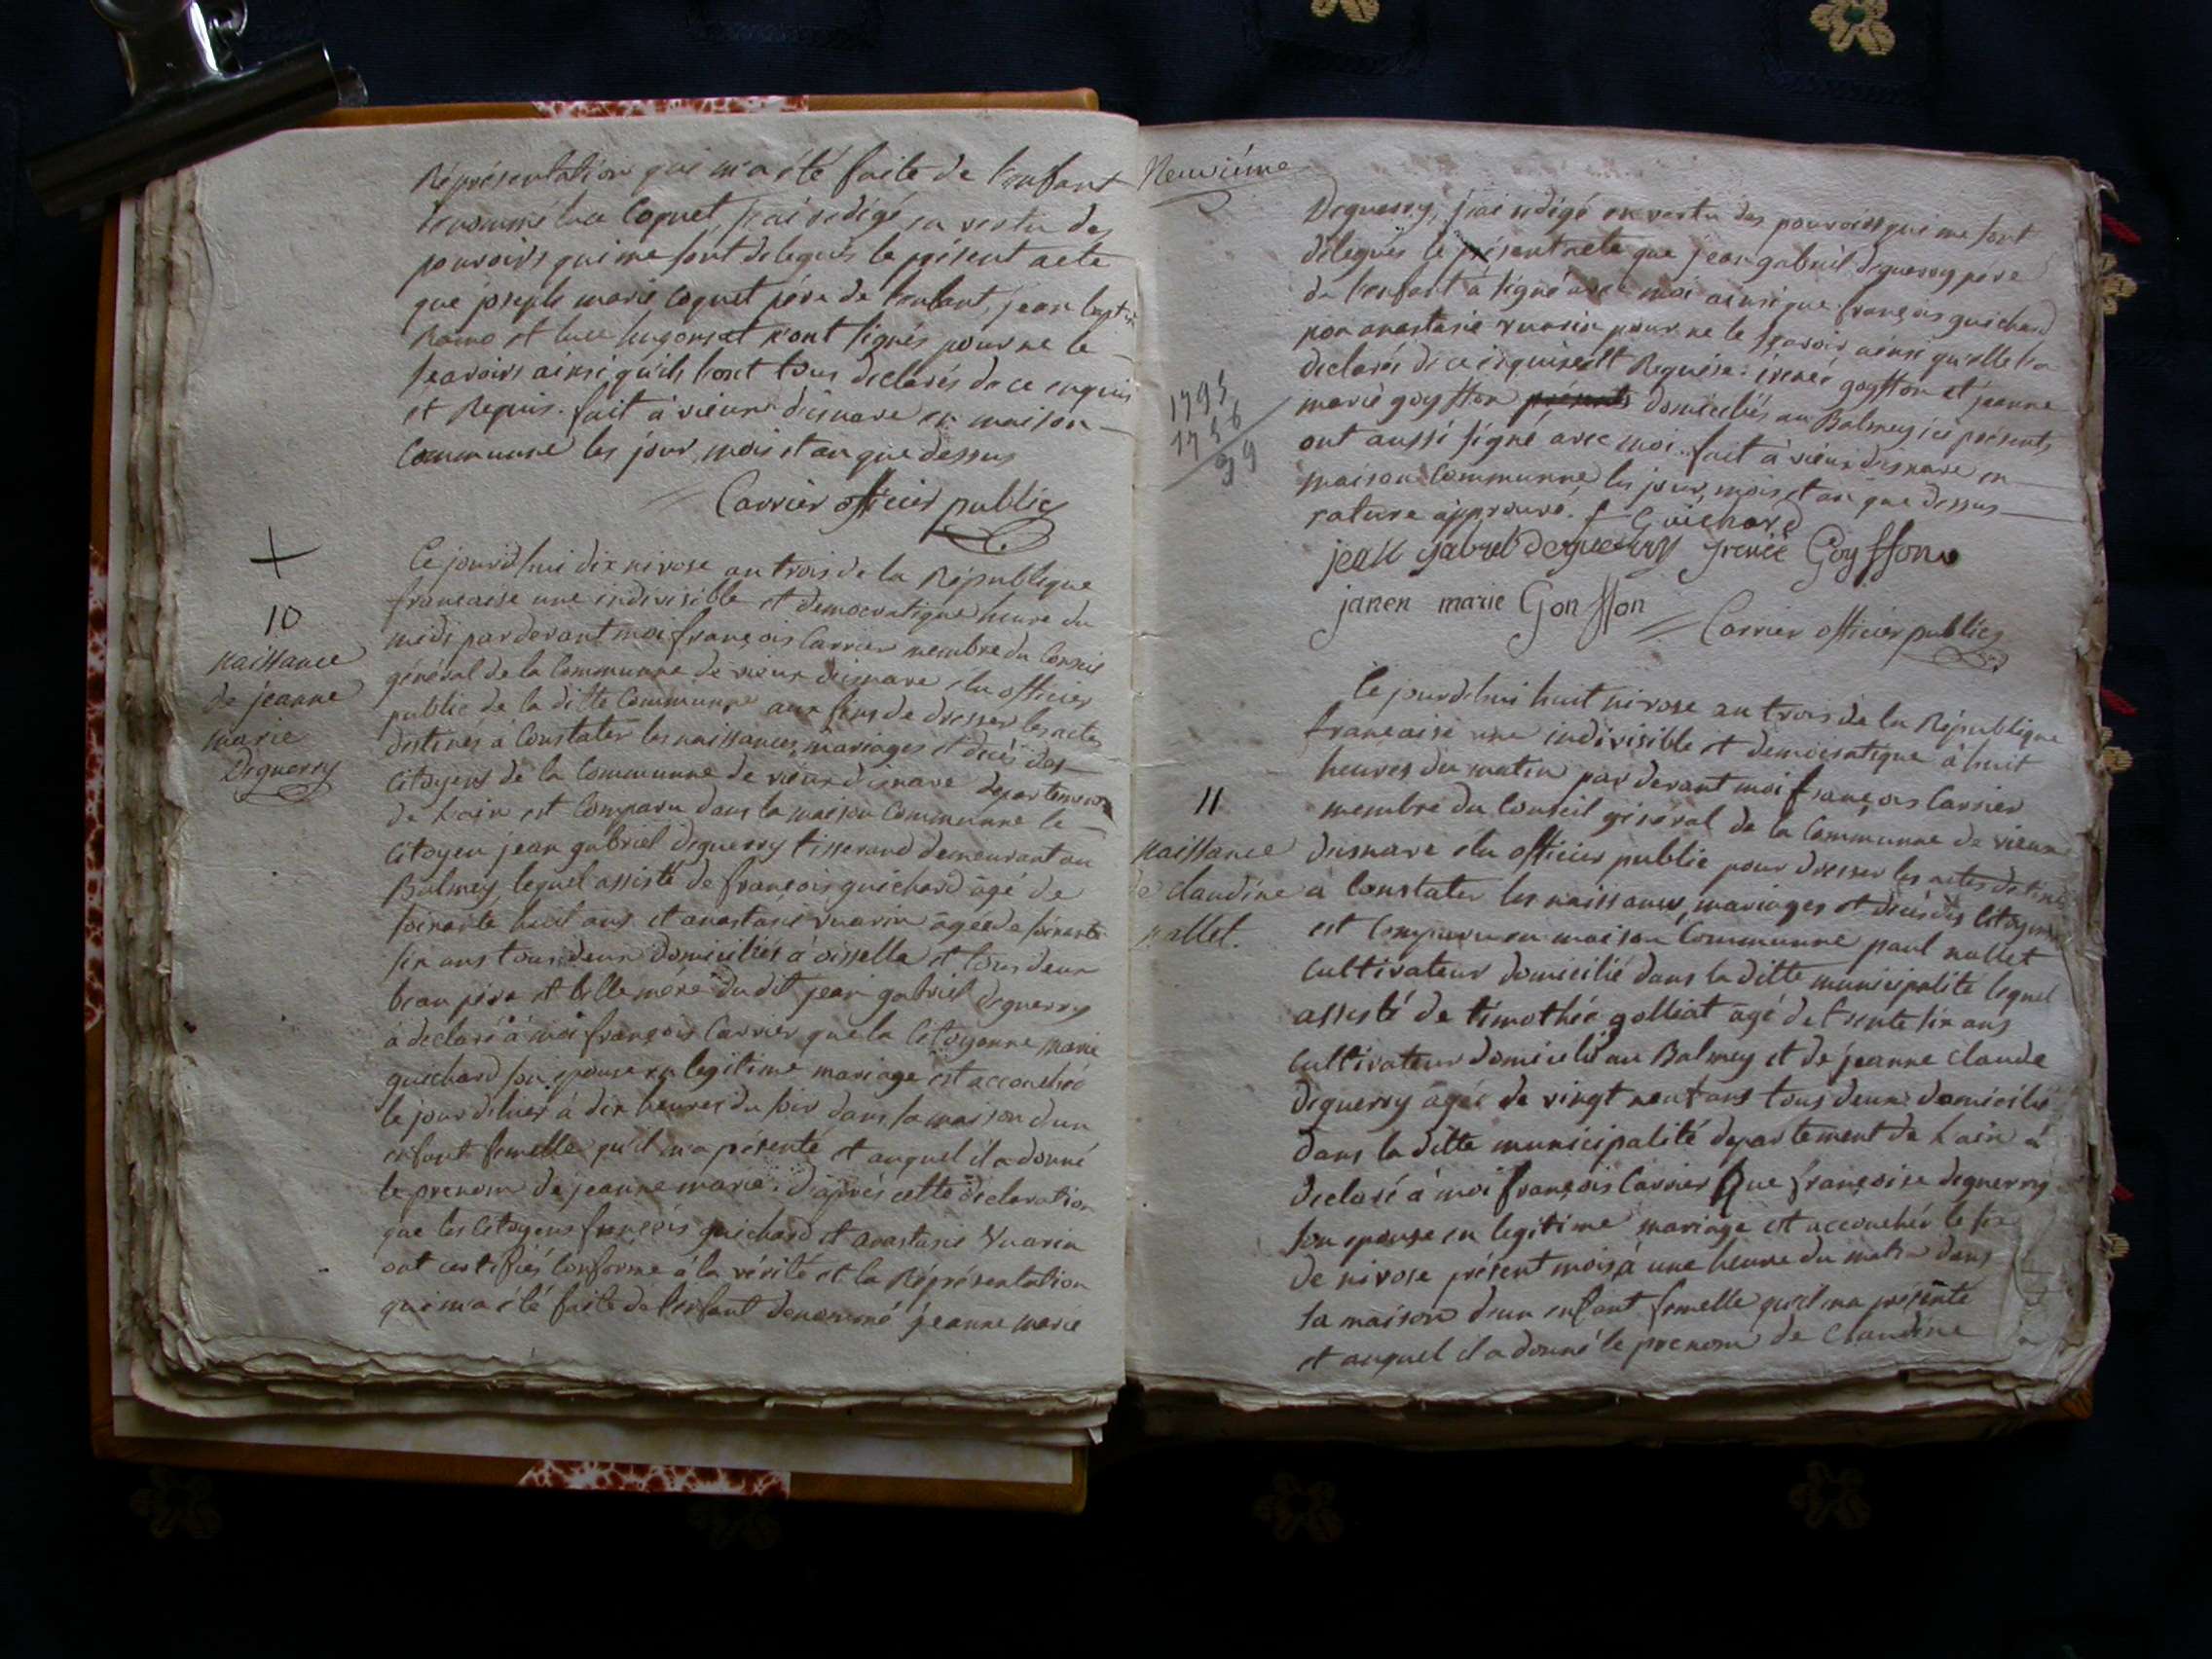 Réprésentation qui m'a été faite de l'enfant
denommé luce Coquet, j'ai redigé en vertu des
pouvoirs qui me sont delegués le présent acte
que joseph marie Coquet pére de l'enfant, jean bapt^te
et luce n'ont signés pour ne le
scavoirs ainsi qu'ils l'ont tous declarés de ce enquis
et Requis. fait à vieux disnave en maison
Communne les jour, mois et an que dessus
Carrier officier public
+
10
naissance
de jeanne
marie
Deguerry
Ce jourd'hui dix nivose an trois de la République
francaise une indivisible et democratique heure du
midi par devant moi françois Carrier membre du Conseil
général de la Communne de vieux disnave élu officier
public de la ditte Communne aux fins de dresser les actes
destinés à Constater les naissances, mariages et décès des
Citoyens de la Communne de vieux disnave departement
de Lain est Comparu dans la maison Communne le
Citoyen jean gabriel deguerry tisserand demeurant au
Balmey lequel assisté de françois guichard âgé de
soixante huit ans et anastasie vuarin âgée de soixante
six ans tous deux domiciliés à oisselle et tous deux
beau pére et belle mére du dit jean gabriel deguerry
à declaré à moi françois Carrier que la Citoyenne Marie
guichard son epouse en legitime mariage est accouchée
le jour d'hier à dix heures du soir dans sa maison d'un
enfant femelle qu'il m'a présenté et auquel il a donné
le prenom de jeanne marie. d'après cette déclaration
que les Citoyens françois guichard et anastasie Vuarin
ont certifiés Conforme à la vérité et la Réprésentation
qui m'a été faite de l'enfant denommé jeanne marie
Neuviéme
Deguerry, j'ai redigé en vertu des pouvoirs qui me sont
délegués le présent acte que jean gabriel deguerry pére
de l'enfant à signé avec moi ainsi que françois guichard
non anastasie vuarin pour ne le scavoir ainsi qu'elle l'a
declarés de ce enquise et Requise. irenée goyffon et jeanne
marie goyffon présents domiciliés au Balmey ici présents
ont aussi signé avec moi. fait à vieux disnave en
maison Communne les jour, mois et an que dessus
rature approuvé. f Guichard
jean gabriel deguerry irenée Goyffon
janen marie Gonffon
Carrier officier public
1795
1756
39
11
naissance
de claudine
nallet.
Ce jourd'hui huit nivose an trois de la République
francaise une indivisible et democratique à huit
heures du matin par devant moi françois Carrier
membre du Conseil général de la Communne de vieux
disnave élu officier public pour dresser les actes destinés
a Constater les naissances, mariages et décès des Citoyens
est Comparu en maison Communne paul nallet
Cultivateur domicilié dans la ditte municipalité lequel
assisté de timothée golliat âgé de trente six ans
Cultivateur domicilié au Balmey et de jeanne claude
deguerry agée de vingt neuf ans tous deux domiciliés
dans la ditte municipalité departement de Lain à
declaré à moi françois Carrier que françoise deguerry
son epouse en legitime mariage est accouchée le six
de nivose présent mois à une heure du matin dans
sa maison d'un enfant femelle qu'il m'a présenté
et auquel il a donné le prenom de Claudine